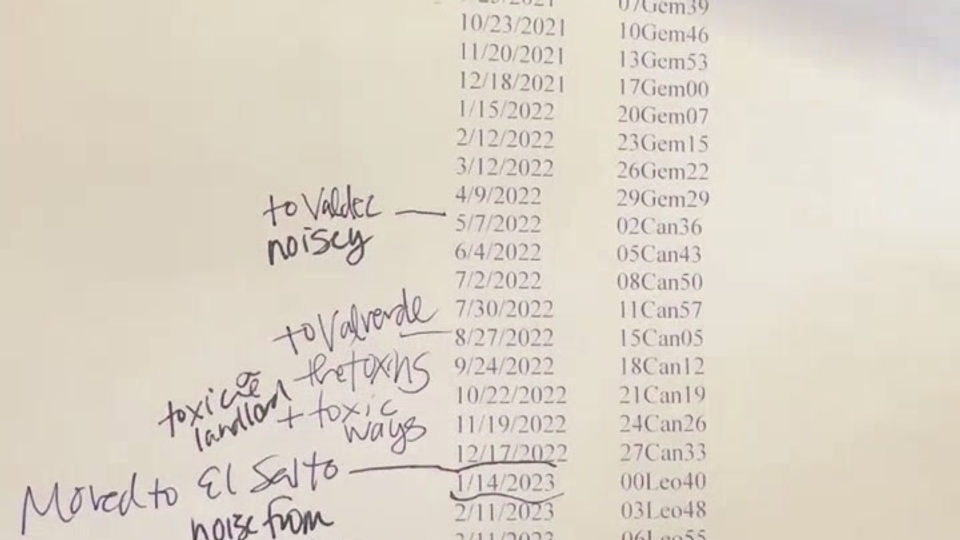 07Gem39
10/23/2021 10Gem46
11/20/2021 13Gem53
12/18/2021 17Gem00
1/15/2022 20Gem07
2/12/2022 23Gem15
3/12/2022 26Gem22
4/9/2022 29Gem29
to Valdez
5/7/2022 02Can36
noisey
6/4/2022 05Can43
7/2/2022 08Can50
7/30/2022 11Can57
to Valverde
8/27/2022 15Can05
9/24/2022 18Can12
the toxins
toxic
10/22/2022 21Can19
landlord + toxic
11/19/2022 24Can26
ways
12/17/2022 27Can33
Moved to El Salto
1/14/2023 00Leo40
2/11/2023 03Leo48
noise from
06Leo55